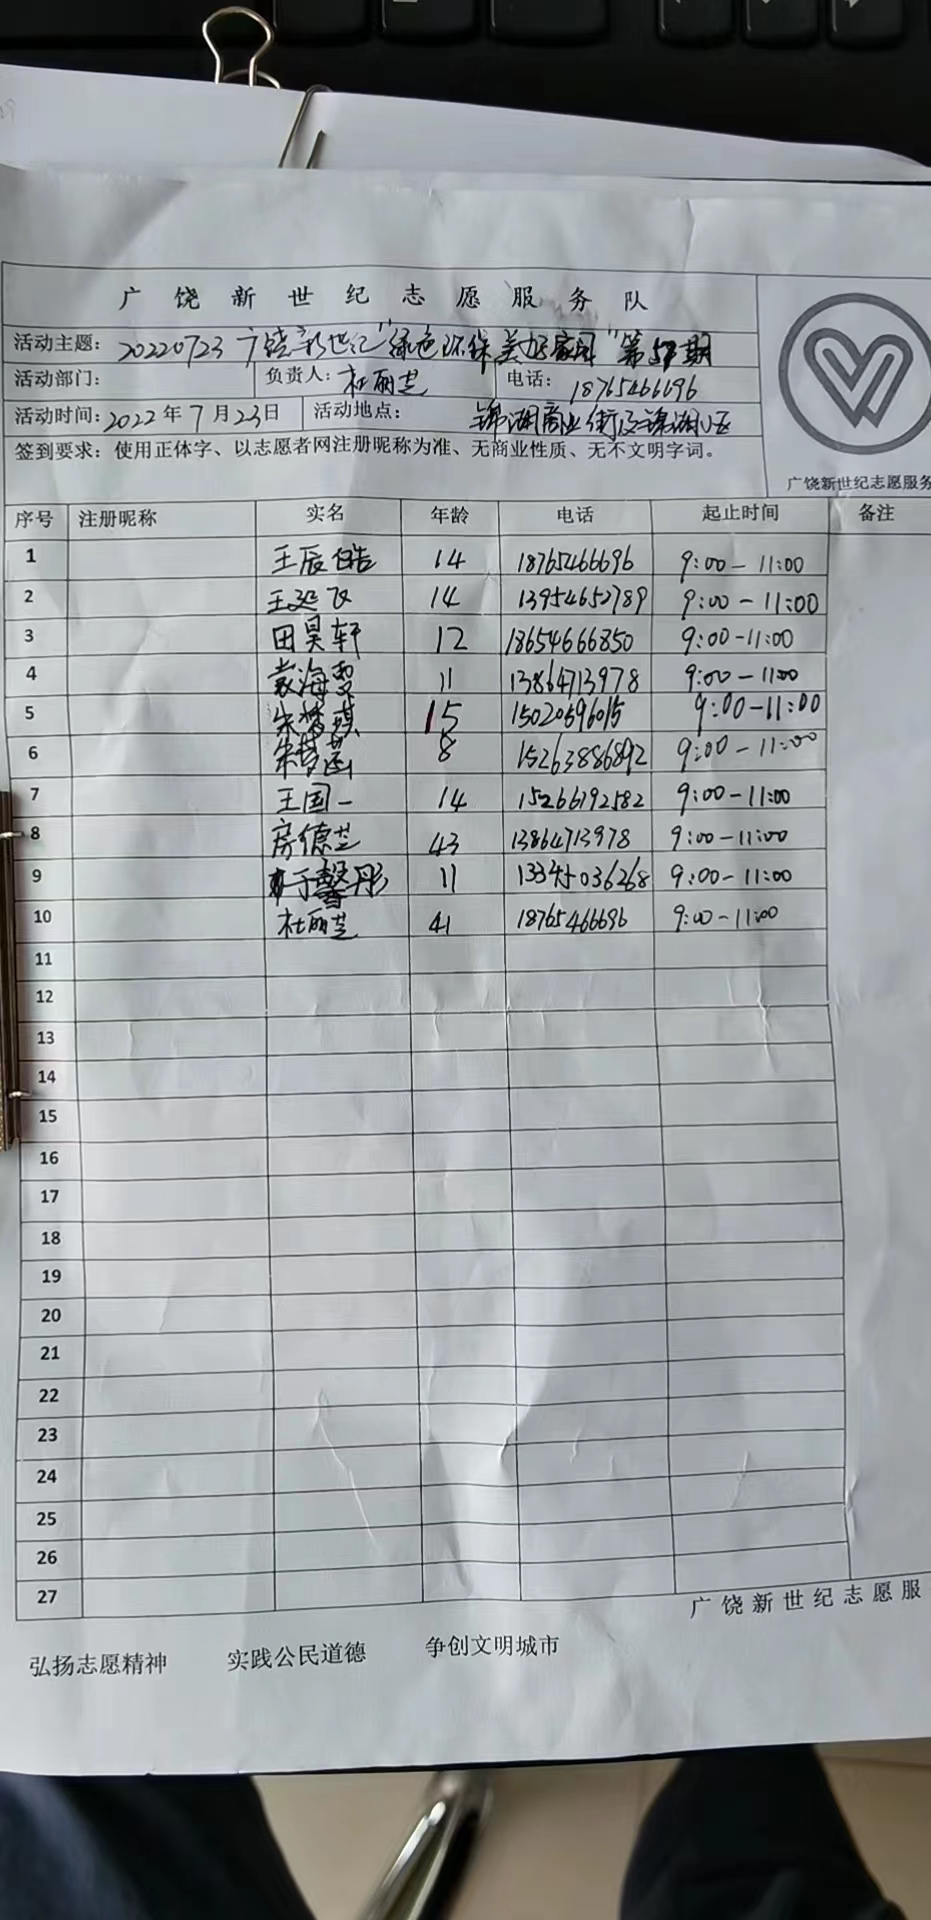 广饶新世纪志愿服务队
活动主题：20220723广饶新世纪"绿色环保美好家园"第57期
活动部门： 负责人：杜丽芝 电话：18765466696
活动时间：2022年7月23日 活动地点：锦湖商业街及锦湖小区
签到要求：使用正体字、以志愿者网注册昵称为准、无商业性质、无不文明字词。
广饶新世纪志愿服务
序号 注册昵称 实名 年龄 电话 起止时间 备注
1 王辰皓 14 18765466696 9:00-11:00
2 王延飞 14 13954652789 9:00-11:00
3 田昊轩 12 18654666850 9:00-11:00
4 袁海雯 11 13864713978 9:00-11:00
5 朱梦琪 15 15020696015 9:00-11:00
6 朱梦菡 8 15263886892 9:00-11:00
7 王国一 14 15266192582 9:00-11:00
8 房德芝 43 13864713978 9:00-11:00
9 于馨彤 11 13345036268 9:00-11:00
10 杜丽芝 41 18765466696 9:00-11:00
11
12
13
14
15
16
17
18
19
20
21
22
23
24
25
26
27
广饶新世纪志愿服
弘扬志愿精神 实践公民道德 争创文明城市